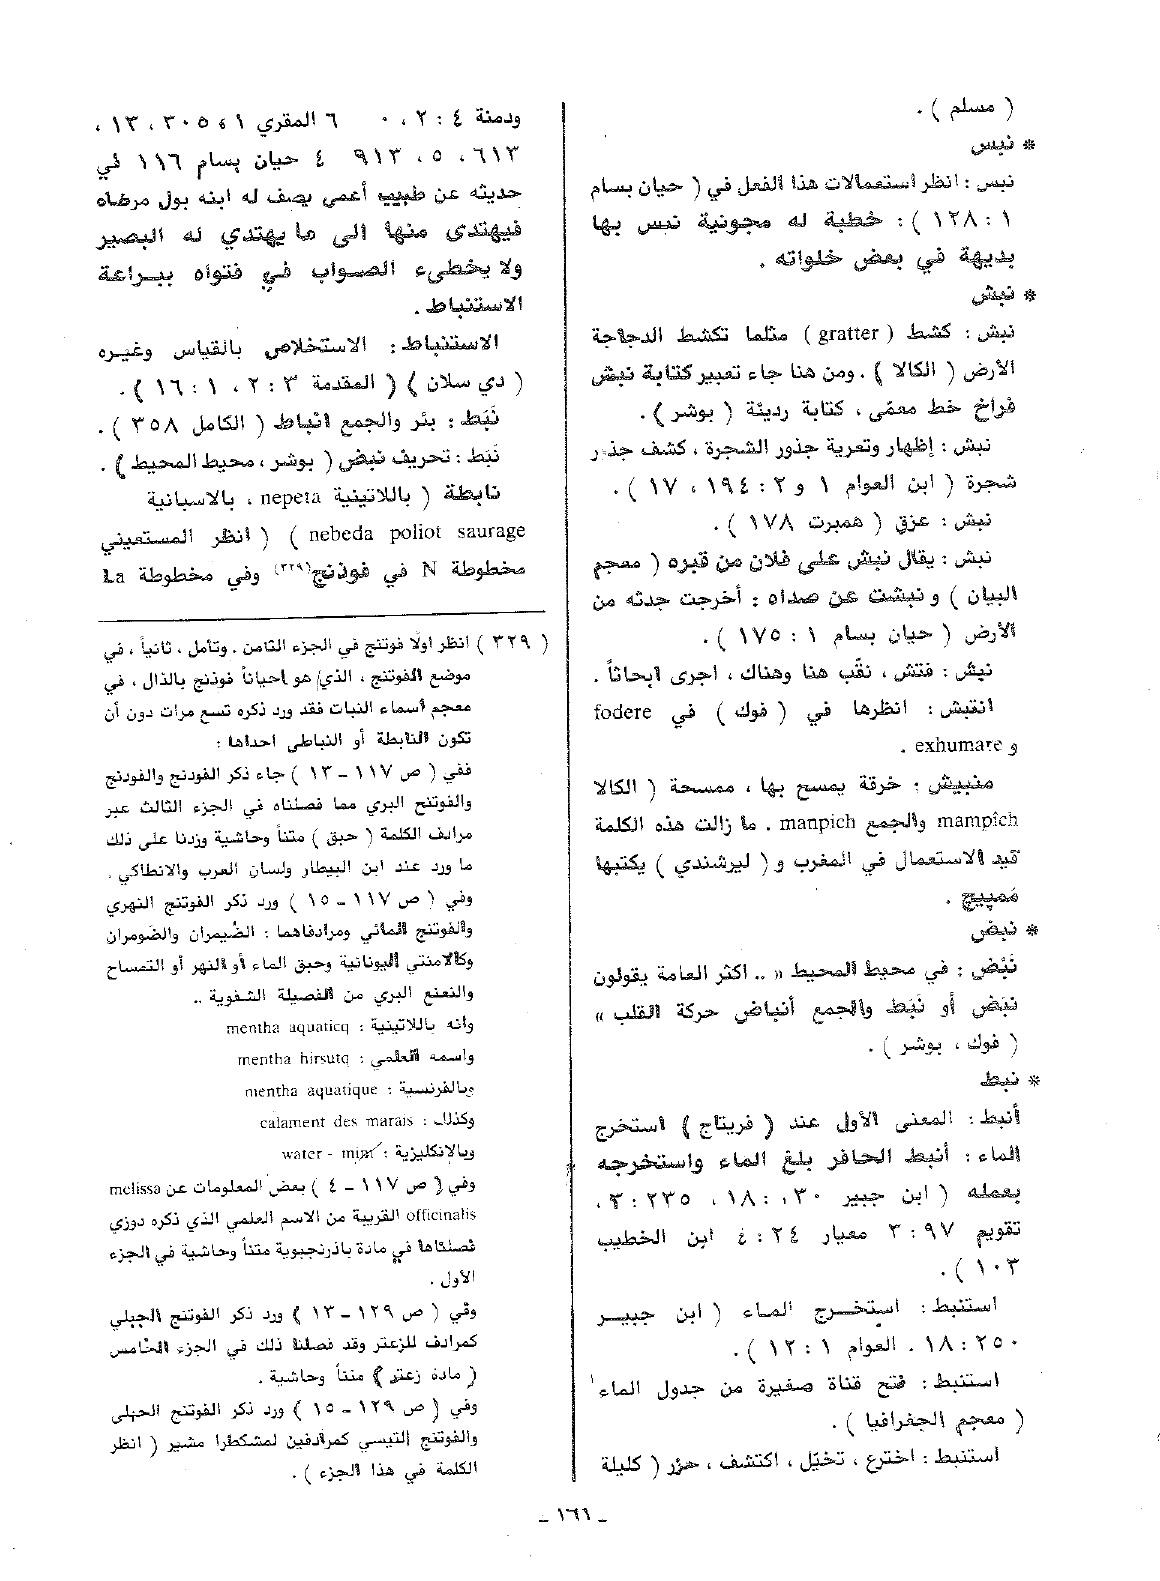 ( مسلم ) .
* نبس
نبس : انظر استعمالات هذا الفعل في ( حيان بسام
١ : ١٢٨ ) : خطبة له مجونية نبس بها
بديهة في بعض خلواته .
* نبش
نبش : كشط ( gratter ) مثلما تكشط الدجاجة
الأرض ( الكالا ) . ومن هنا جاء تعبير كتابة نبش
فراخ خط معمّى ، كتابة رديئة ( بوشر ) .
نبش : إظهار وتعرية جذور الشجرة ، كشف جذر
شجرة ( ابن العوام ١ و ٢ : ١٩٤ ، ١٧ ) .
نبش : عزق ( همبرت ١٧٨ ) .
نبش : يقال نبش على فلان من قبره ( معجم
البيان ) و نبشت عن صداه : أخرجت جدثه من
الأرض ( حيان بسام ١ : ١٧٥ ) .
نبش : فتش ، نقّب هنا وهناك ، اجرى ابحاثاً .
انتبش : انظرها في ( فوك ) في fodere
و exhumare .
منبيش : خرقة يمسح بها ، ممسحة ( الكالا
mampîch والجمع manpich . ما زالت هذه الكلمة
قيد الاستعمال في المغرب و ( ليرشندي ) يكتبها
مَمبيج .
* نبض
نَبْض : في محيط المحيط « .. اكثر العامة يقولون
نبَض أو نَبَط والجمع أنباض حركة القلب »
( فوك ، بوشر ) .
* نبط
أنبط : المعنى الأول عند ( فريتاج ) استخرج
الماء : أنبط الحافر بلغ الماء واستخرجه
بعمله ( ابن جبير ٣٠ ، ١٨ : ٢٣٥ ، ٣ :
تقويم ٩٧ : ٣ معيار ٢٤ : ٤ ابن الخطيب
١٠٣ ) .
استنبط : استخرج الماء ( ابن جبير
٢٥٠ : ١٨ . العوام ١ : ١٢ ) .
استنبط : فتح قناة صغيرة من جدول الماء
( معجم الجغرافيا ) .
استنبط : اخترع ، تخيّل ، اكتشف ، حزّر ( كليلة
ودمنة ٤ : ٢ ، ٦ المقري ١ ، ٣٠٥ ، ١٣ ،
٦١٣ ، ٥ ، ٩١٣ ٤ حيان بسام ١١٦ في
حديثه عن طبيب أعمى يصف له ابنه بول مرضاه
فيهتدى منها الى ما يهتدي له البصير
ولا يخطىء الصواب في فتواه ببراعة
الاستنباط .
الاستنباط : الاستخلاص بالقياس وغيره
( دي سلان ) ( المقدمة ٣ : ٢ ، ١ : ١٦ ) .
نَبَط : بئر والجمع انباط ( الكامل ٣٥٨ ) .
نَبَط : تحريف نبض ( بوشر ، محيط المحيط ) .
نابطة ( باللاتينية nepeta ، بالاسبانية
nebeda poliot saurage ) ( انظر المستعيني
مخطوطة N في فوذنج(٣٢٩) وفي مخطوطة La
( ٣٢٩ ) انظر اولًا فوتنج في الجزء الثامن . وتأمل ، ثانياً ، في
موضع الفوتنج ، الذي هو احياناً فوذنج بالذال ، في
معجم أسماء النبات فقد ورد ذكره تسع مرات دون أن
تكون النابطة أو النباطي احداها :
ففي ( ص ١١٧ - ١٣ ) جاء ذكر الفودنج والفوذنج
والفوتنج البري مما فصلناه في الجزء الثالث عبر
مرادف الكلمة ( حبق ) متناً وحاشية وزدنا على ذلك
ما ورد عند ابن البيطار ولسان العرب والانطاكي .
وفي ( ص ١١٧ - ١٥ ) ورد ذكر الفوتنج النهري
والفوتنج المائي ومرادفاهما : الضَيمران والضومران
وكالامنتي اليونانية وحبق الماء أو النهر أو التمساح
والنعنع البري من الفصيلة الشفوية ..
وأنه باللاتينية : mentha aquaticq
واسمه العلمي : mentha hirsutq
وبالفرنسية : mentha aquatique
وكذلك : calament des marais
وبالانكليزية : water - mint
وفي ( ص ١١٧ - ٤ ) بعض المعلومات عن melissa
officinalis القريبة من الاسم العلمي الذي ذكره دوزي
فصلناها في مادة باذرنجبوية متناً وحاشية في الجزء
الأول .
وفي ( ص ١٢٩ - ١٣ ) ورد ذكر الفوتنج الجبلي
كمرادف للزعتر وقد فصلنا ذلك في الجزء الخامس
( مادة زعتر ) متناً وحاشية .
وفي ( ص ١٢٩ - ١٥ ) ورد ذكر الفوتنج الجبلي
والفوتنج التيسي كمرادفين لمشكطرا مشير ( انظر
الكلمة في هذا الجزء ) .
ـ ١٦١ ـ